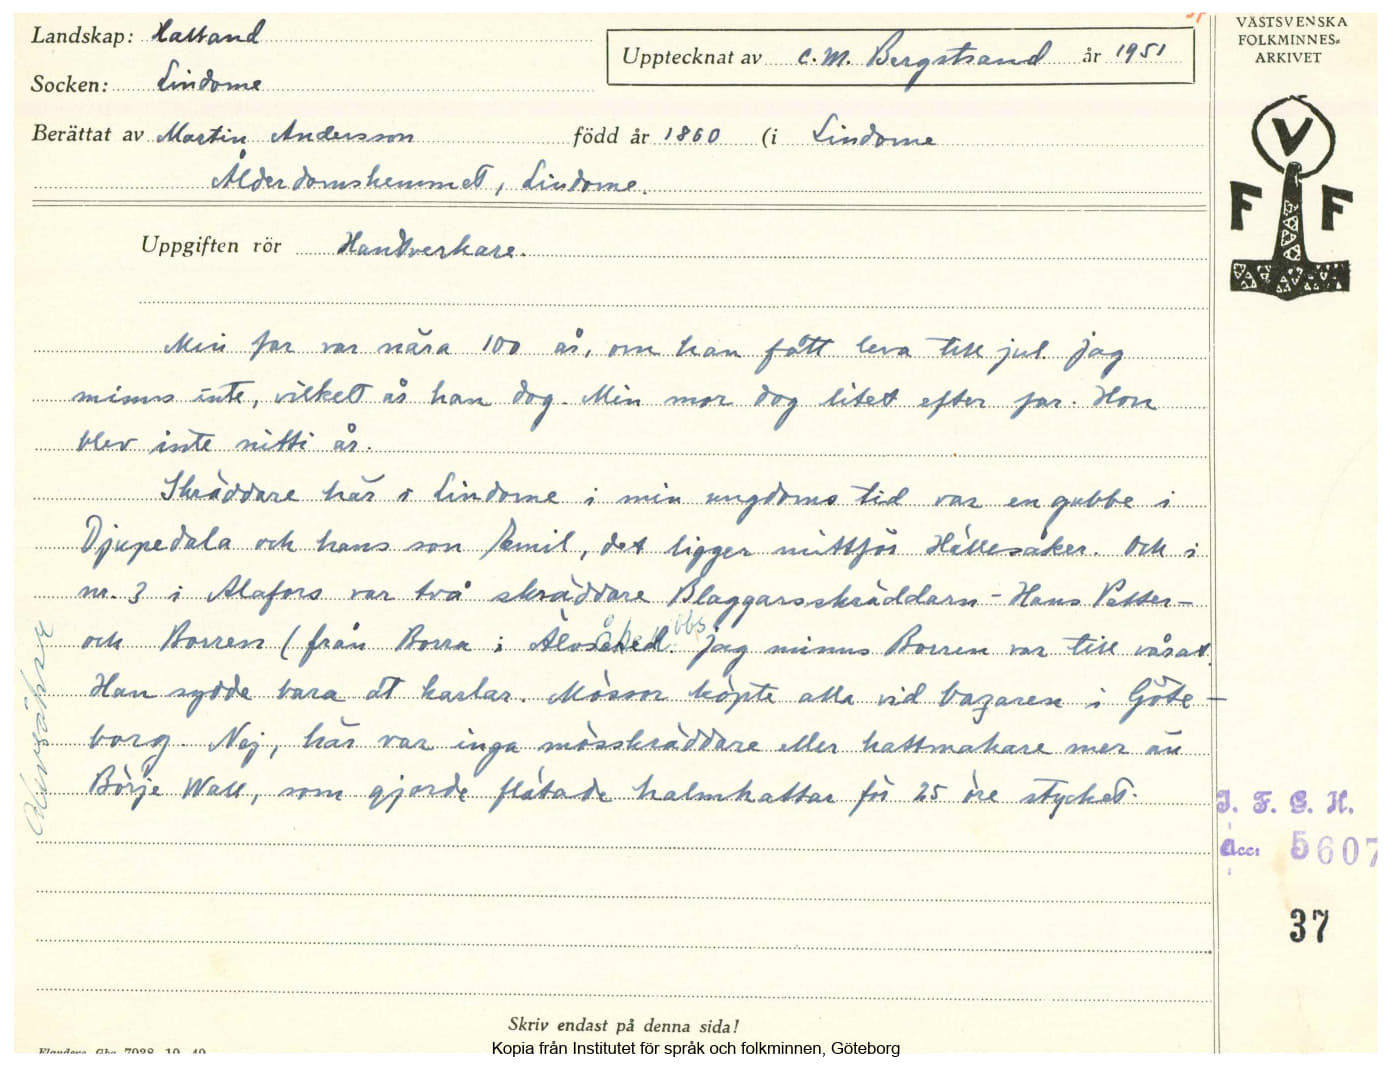 Landskap: Halland
Socken: Lindome
Upptecknat av C. M. Bergstrand år 1951
Berättat av Martin Andersson född år 1860 (i Lindome
Ålderdomshemmet, Lindome.
VÄSTSVENSKA
FOLKMINNES-
ARKIVET
V
F F
Uppgiften rör Handtverkare.
Min far var nära 100 år, om han fått leva till jul jag
minns inte, vilket år han dog. Min mor dog litet efter far. Hon
blev inte nitti år.
Skräddare här i Lindome i min ungdoms tid var en gubbe i
Djupedala och hans son Emil, det ligger mittför Hällesåker. Och i
nr. 3 i Alafors var två skräddare Blaggarsskräddarn - Hans Petter -
och Borren (från Borra i jag minns Borren var till vårat.
Han sydde bara åt karlar. Mössor köpte alla vid bazaren i Göte-
borg. Nej, här var inga mösskräddare eller hattmakare mer än
Börje Wall, som gjorde flätade halmhattar för 25 öre stycket.
I. F. G. H.
acc: 5607
37
Skriv endast på denna sida!
Kopia från Institutet för språk och folkminnen, Göteborg